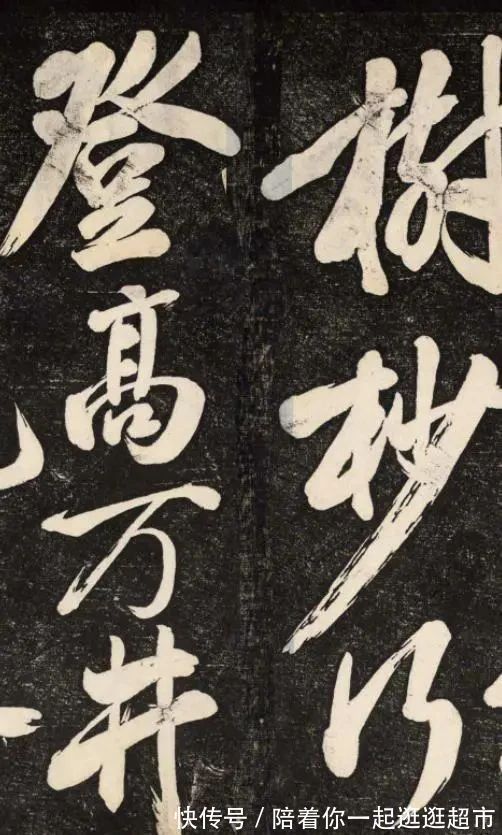 樹杪行
登高万井
快传号 / 陪着你一起逛逛超市